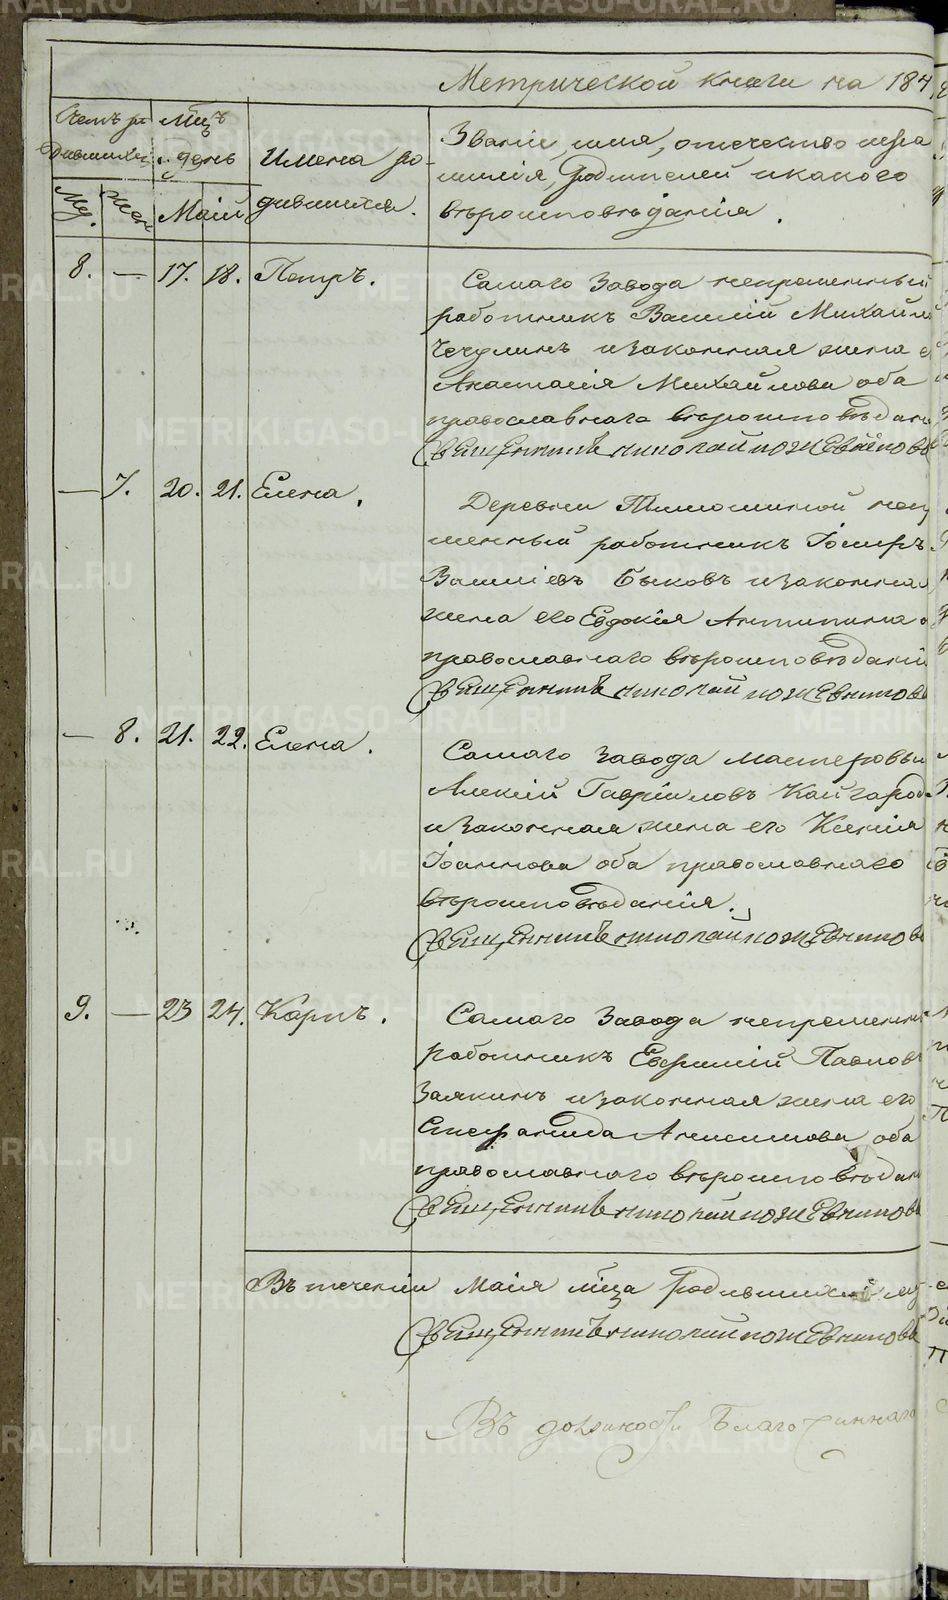 Метрической книги на 184
Счетъ ро
дившихся
Мцъ
и день
Имена ро-
дившихся.
Званіе, имя, отечество и фа
милія, родителей и какого
вѣроисповѣданія.
Му. Жен. Маій
8. — 17. 18. Петръ.
Самаго Завода непременный
работникъ Василій Михайло
Чечулинъ и законная жена е
Анастасія Михайлова оба
православнаго вѣроисповѣдан
Священникъ Николай Ножевниковъ
— 7. 20. 21. Елена.
Деревни
менный работникъ
Василіевъ Быковъ и законная
жена его Евдокія Антипина о
православнаго вѣроисповѣданія
Священникъ Николай Ножевниковъ
— 8. 21. 22. Елена.
Самаго Завода мастеровый
Алексій Гавріиловъ Кайгород
и законная жена его Ксенія
Іоаннова оба православнаго
вѣроисповѣданія.
Священникъ Николай Ножевниковъ
9. — 23 24. Карпъ.
Самаго Завода непременны
работникъ Евфимій Павлов
Заякинъ и законная жена его
Стефанида Анисимова оба
православнаго вѣроисповѣдан
Священникъ Николай Ножевниковъ
Въ теченіи Маія мца родившихся му
Священникъ Николай Ножевниковъ
Въ должности Благочиннаго
METRIKI.GASO-URAL.RU